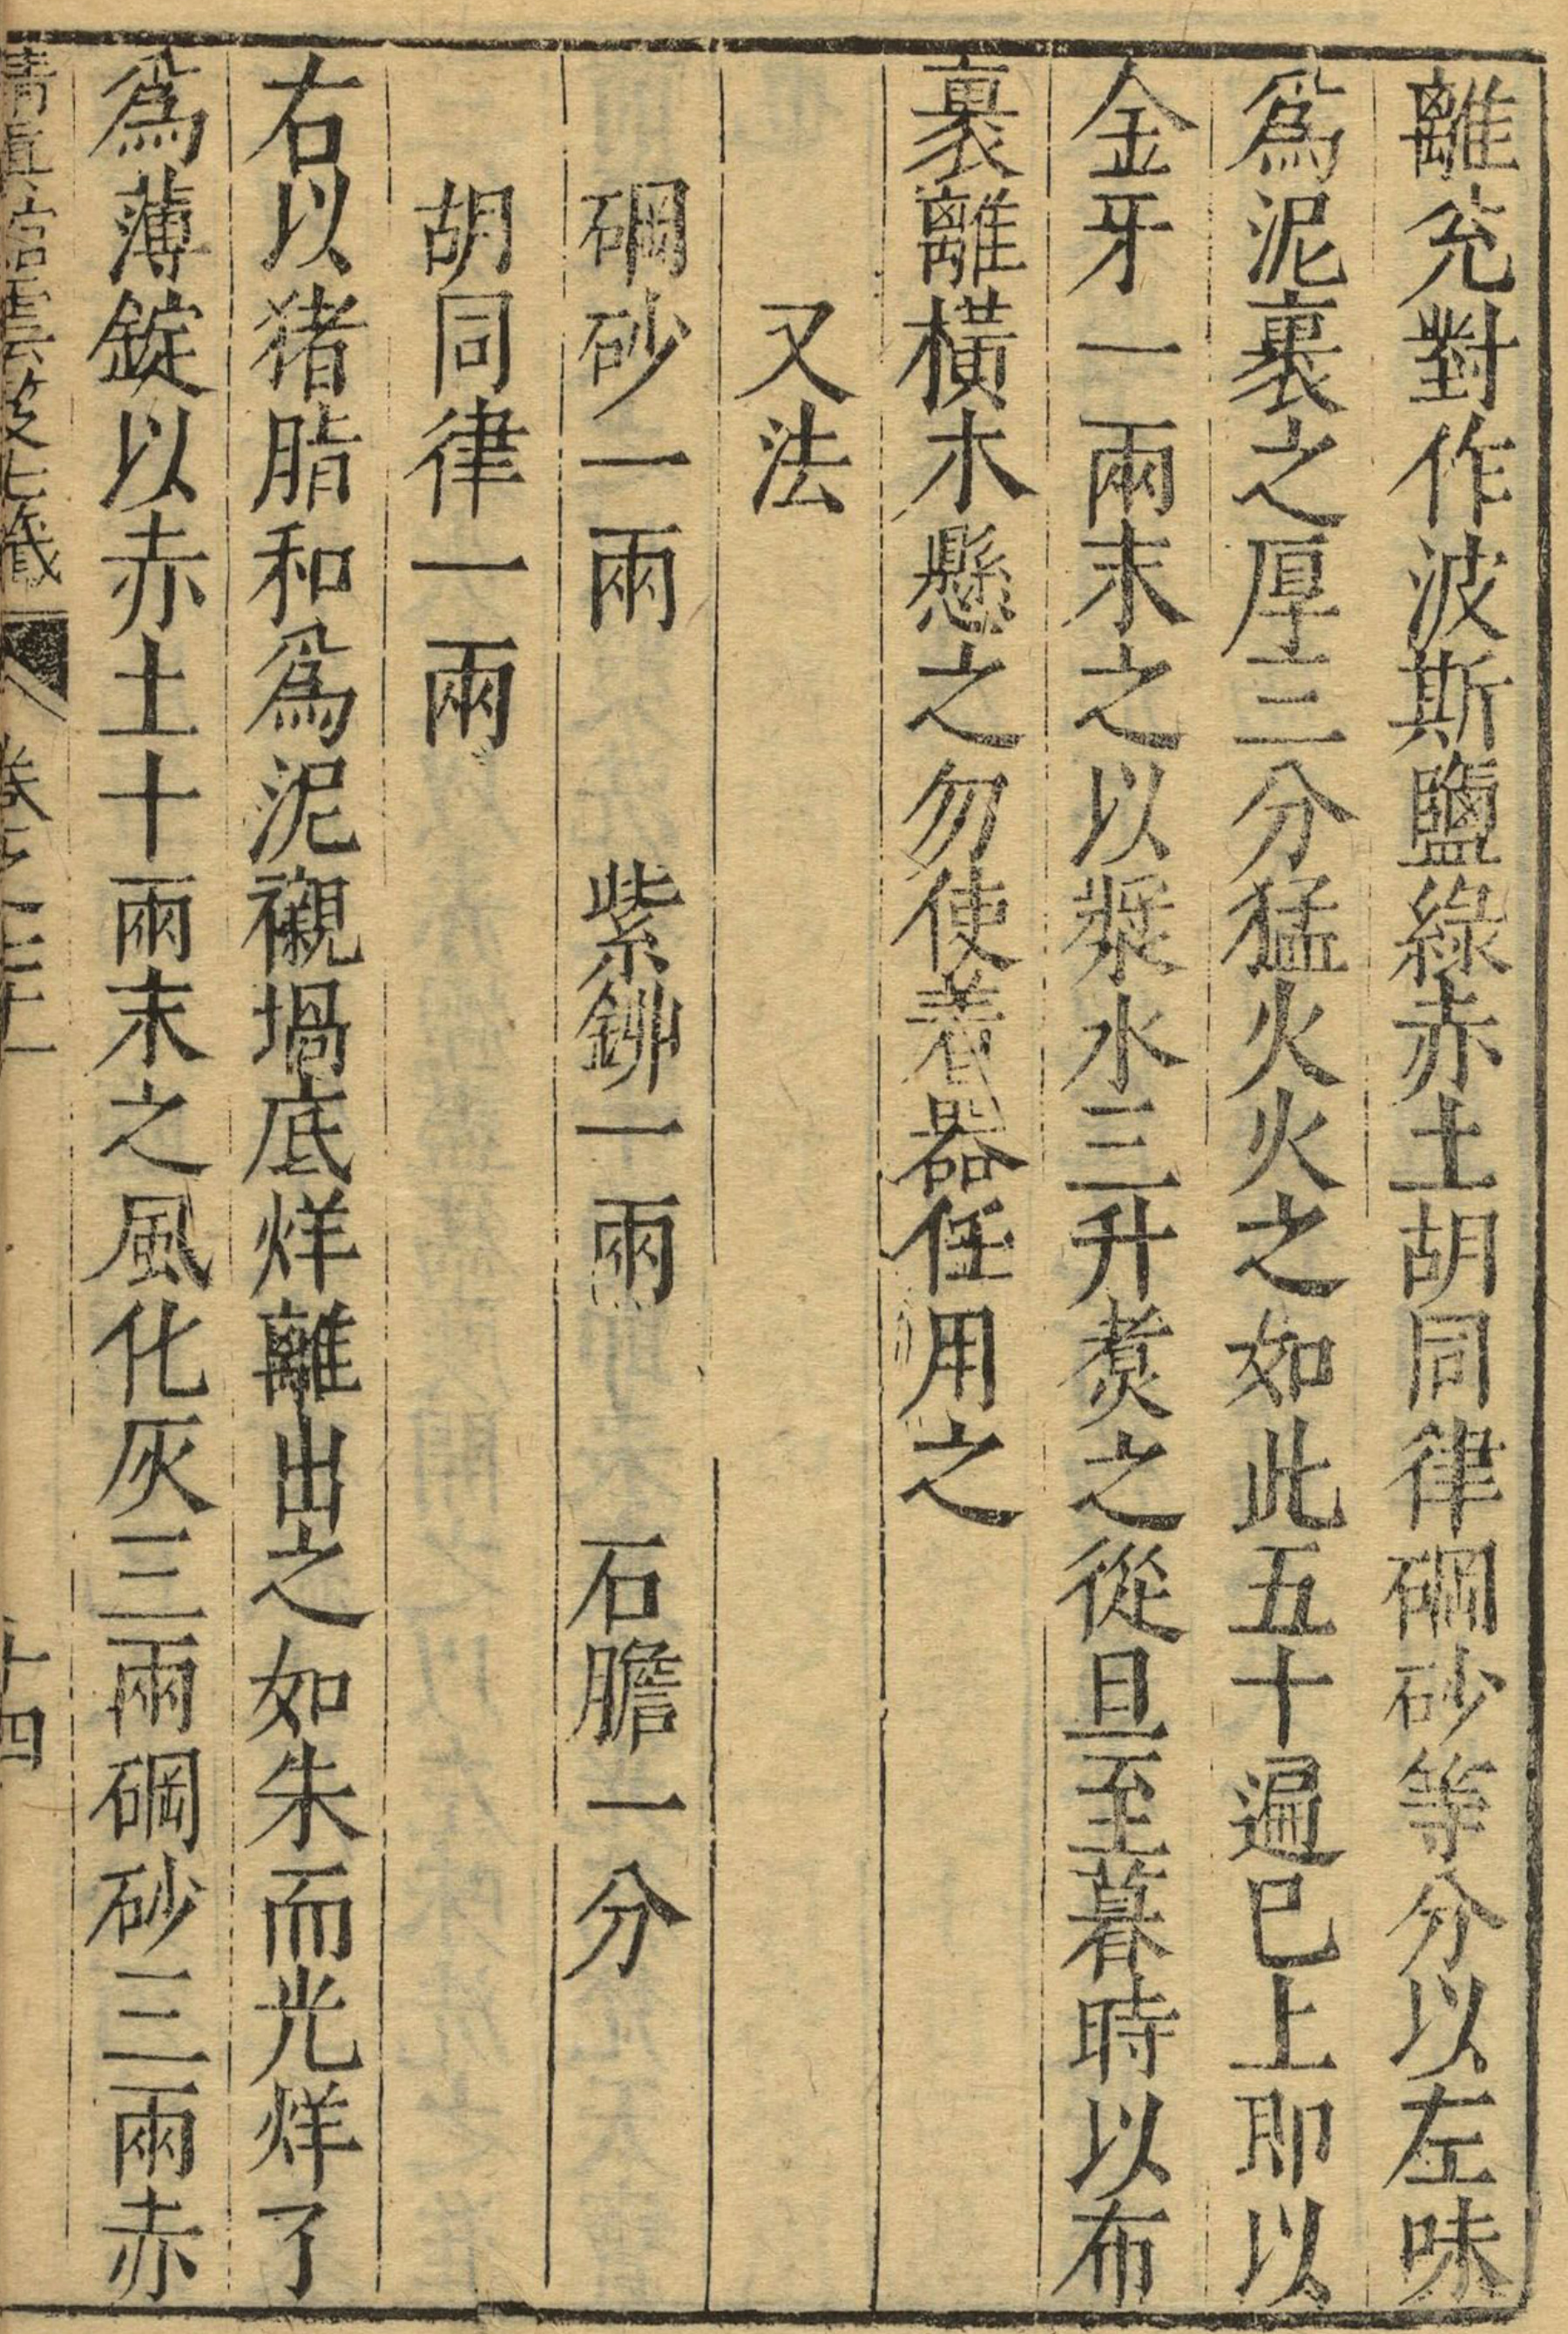 離兊對作波斯鹽綠赤土胡同律硇砂等分以左味
爲泥裹之厚三分猛火火之如此五十遍已上即以
金牙一兩末之以漿水三升煑之從旦至暮時以布
裹離橫木懸之勿使着器任用之
又法
硇砂一兩　紫鉚一兩　石膽一分
胡同律一兩
右以猪脂和爲泥襯堝底烊離出之如朱而光烊了
爲薄錠以赤土十兩末之風化灰三兩硇砂三兩赤
雲笈七籤　卷之七十一　十四